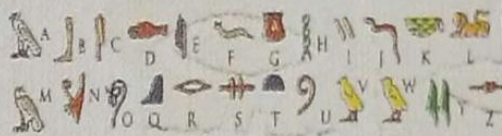 A B C D E F G H I J K L
M N O Q R S T U V W Y Z